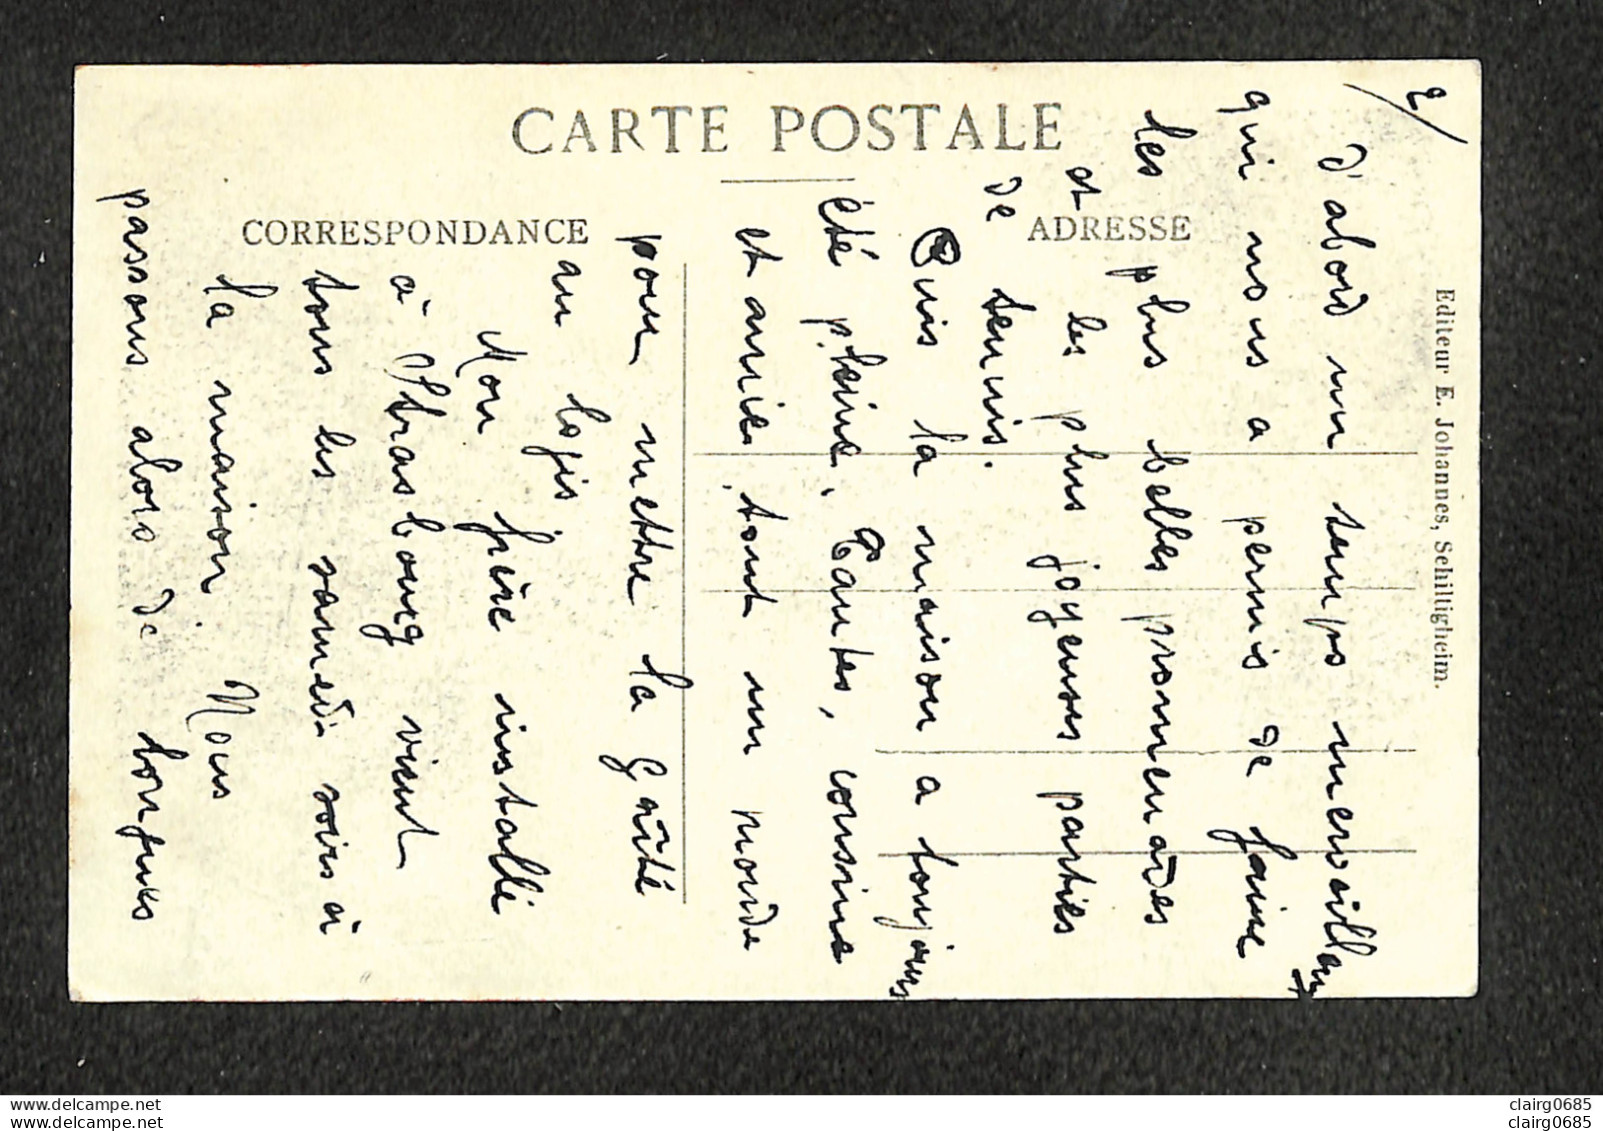 CARTE POSTALE
CORRESPONDANCE
ADRESSE
Editeur E. Johannes, Schiltigheim.
2/
d'abord un temps merveilleux
qui nous a permis de faire
les plus belles promenades
et les plus joyeuses parties
de tennis.
Puis la maison a toujours
été pleine. Tantes, cousine
et amie, tout un monde
pour mettre la Gaîté
au logis
Mon frère installé
à Strasbourg vient
tous les samedi soirs à
la maison. Nous
passons alors de longues
clairg0685
clairg0685
clairg0685
clairg0685